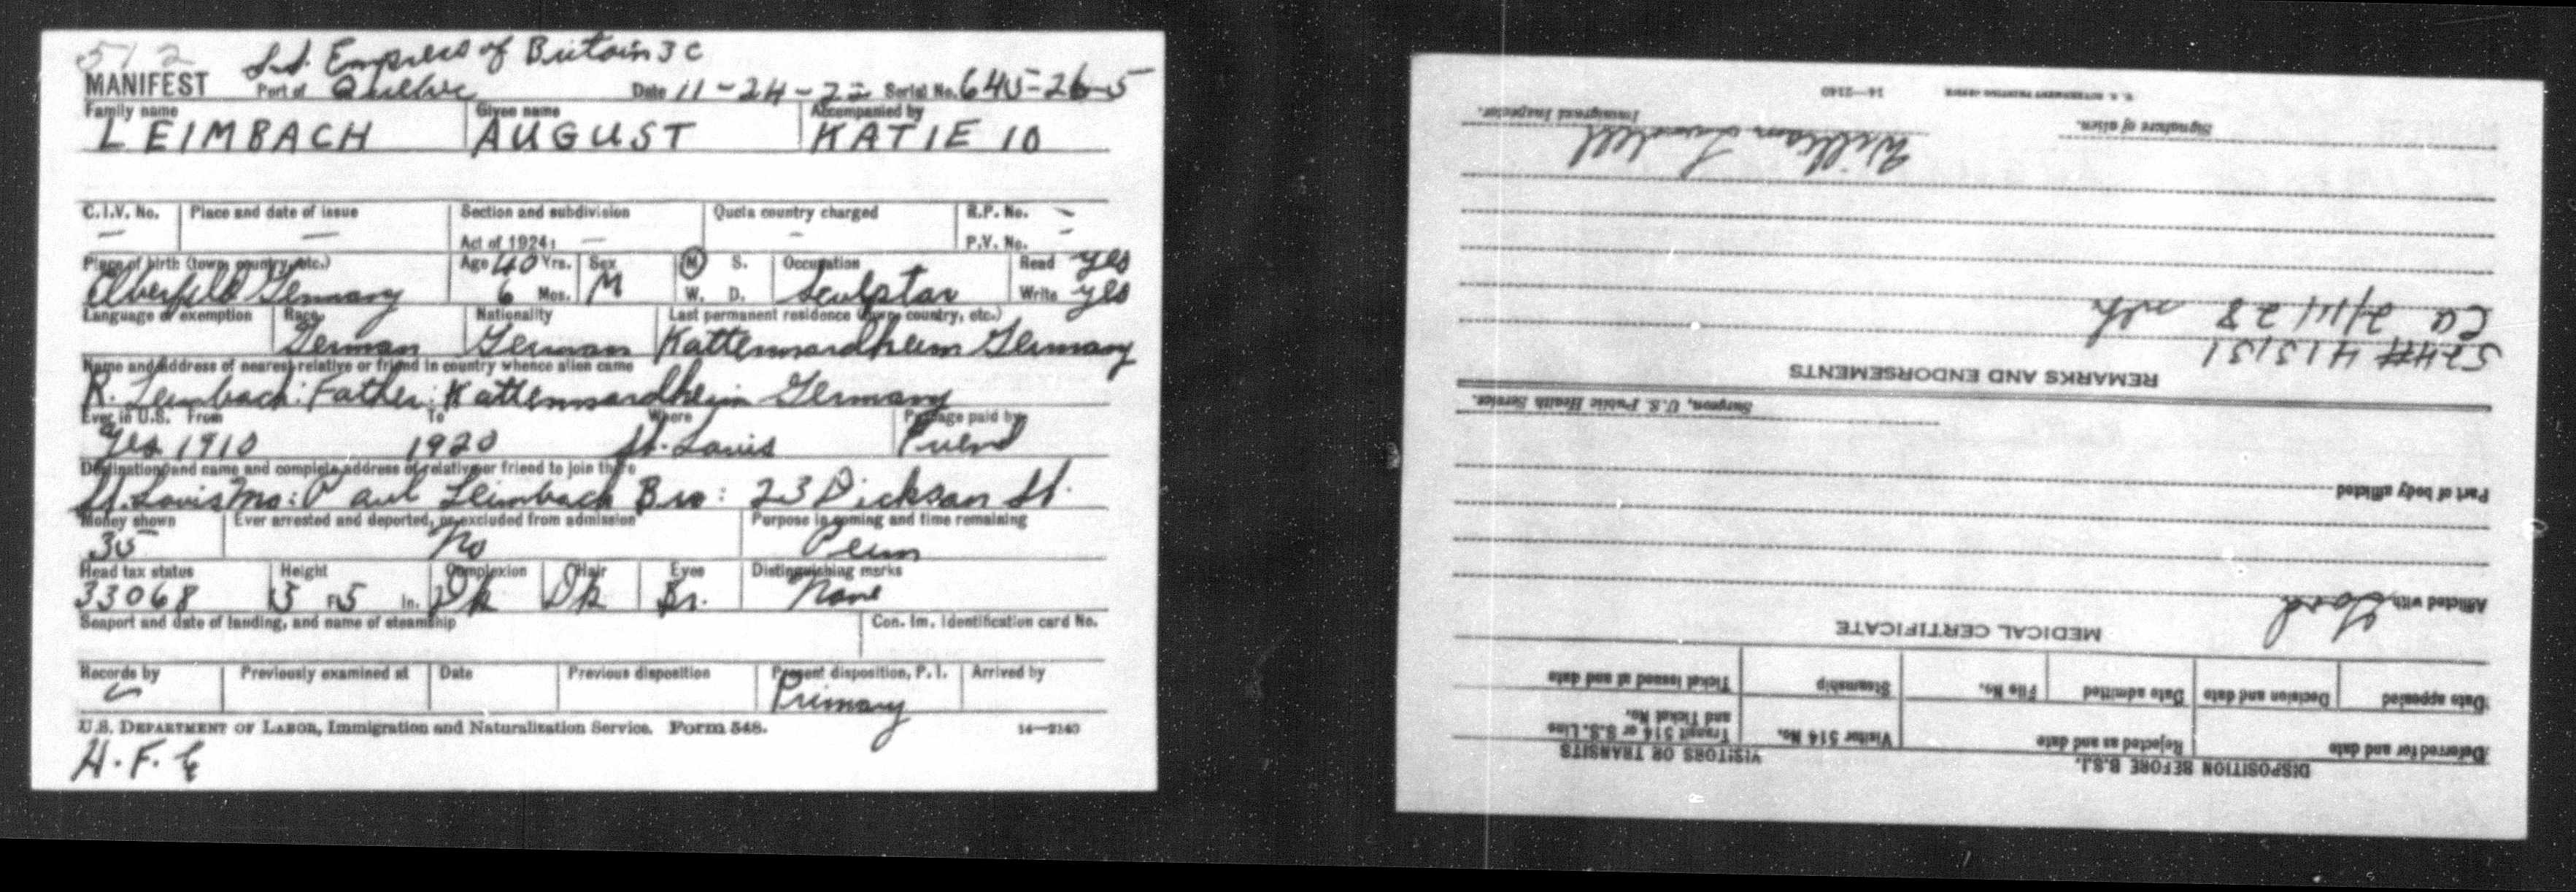 512 S.S. Empress of Britain 3 C
MANIFEST Port of Quebec Date 11-24-22 Serial No. 645-26-5
Family name Given name Accompanied by
LEIMBACH AUGUST KATIE 10
C.I.V. No. Place and date of issue Section and subdivision Quota country charged R.P. No. —
— — Act of 1924: — - P.V. No. -
Place of birth (town, country, etc.) Age 40 Yrs. Sex M. S. Occupation Read yes
Elberfeld Germany 6 Mos. M W. D. Sculptor Write yes
Language or exemption Race Nationality Last permanent residence (town, country, etc.)
German German Kattennordheim Germany
Name and address of nearest relative or friend in country whence alien came
R. Leimbach: Father: Kattennordheim Germany
Ever in U.S. From To Where Passage paid by
Yes 1910 1920 St. Louis
Destination, and name and complete address of relative or friend to join there
St. Louis Mo: Paul Leimbach Bro: 23 Dickson St.
Money shown Ever arrested and deported, or excluded from admission Purpose in coming and time remaining
35 No Perm
Head tax status Height Complexion Hair Eyes Distinguishing marks
33068 5 Ft. 5 In. Dk Dk Br. None
Seaport and date of landing, and name of steamship Con. Im. Identification card No.
Records by Previously examined at Date Previous disposition Present disposition, P. I. Arrived by
Primary
U.S. DEPARTMENT OF LABOR, Immigration and Naturalization Service. Form 548. 14—2140
H. F. G
DISPOSITION BEFORE B.S.I. VISITORS OR TRANSITS
Deferred for and date Rejected as and date Visitor 514 No. Transit 514 or S.S. Line and Ticket No.
Date appealed Decision and date Date admitted File No. Steamship Ticket issued at and date
MEDICAL CERTIFICATE
Afflicted with Good
Part of body afflicted
Surgeon, U.S. Public Health Service.
REMARKS AND ENDORSEMENTS
524# 415151
Ca 2/11/28
William
Signature of alien. Immigrant Inspector.
14—2140 U. S. GOVERNMENT PRINTING OFFICE